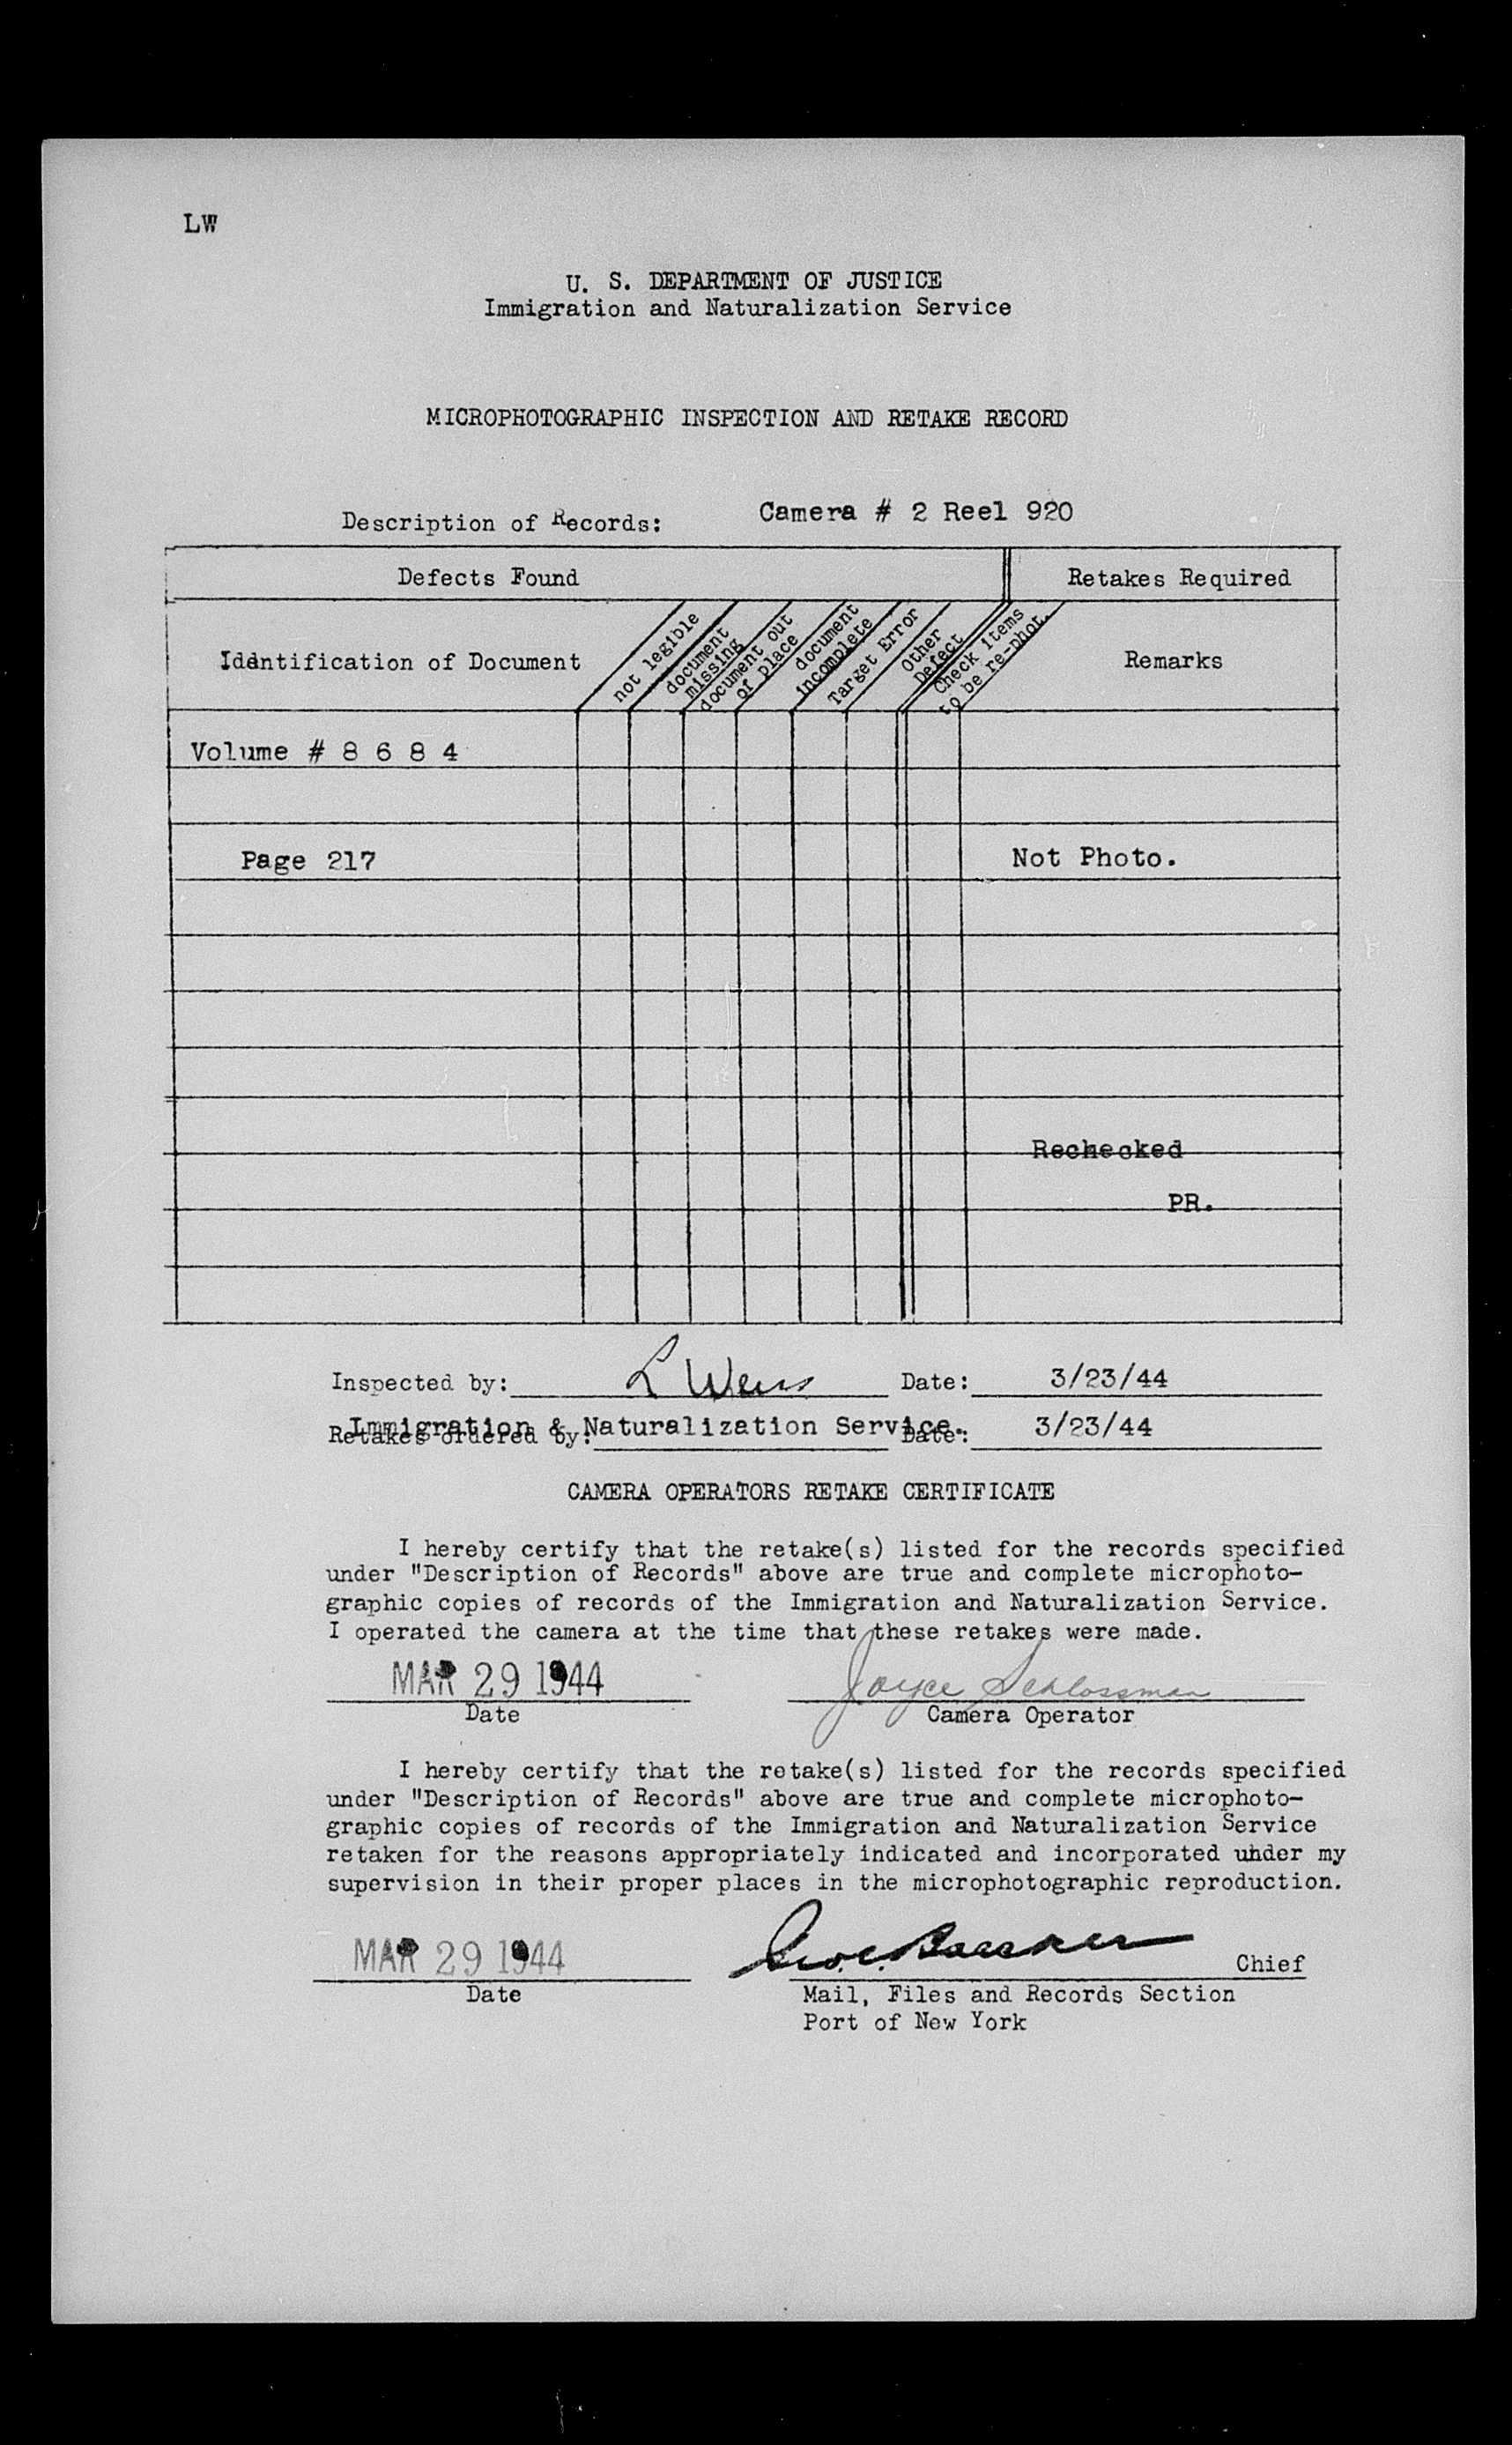 LW
U. S. DEPARTMENT OF JUSTICE
Immigration and Naturalization Service
MICROPHOTOGRAPHIC INSPECTION AND RETAKE RECORD
Description of Records: Camera # 2 Reel 920
Defects Found Retakes Required
Identification of Document
not legible
document missing
document out of place
document incomplete
Target Error
Other Defect
Check items to be re-phot.
Remarks
Volume # 8 6 8 4
Page 217 Not Photo.
Rechecked
PR.
Inspected by: L Weiss Date: 3/23/44
Retakes ordered by: Immigration & Naturalization Service. Date: 3/23/44
CAMERA OPERATORS RETAKE CERTIFICATE
I hereby certify that the retake(s) listed for the records specified
under "Description of Records" above are true and complete microphoto-
graphic copies of records of the Immigration and Naturalization Service.
I operated the camera at the time that these retakes were made.
MAR 29 1944 Joyce Schlossman
Date Camera Operator
I hereby certify that the retake(s) listed for the records specified
under "Description of Records" above are true and complete microphoto-
graphic copies of records of the Immigration and Naturalization Service
retaken for the reasons appropriately indicated and incorporated under my
supervision in their proper places in the microphotographic reproduction.
MAR 29 1944 Chief
Date Mail, Files and Records Section
Port of New York